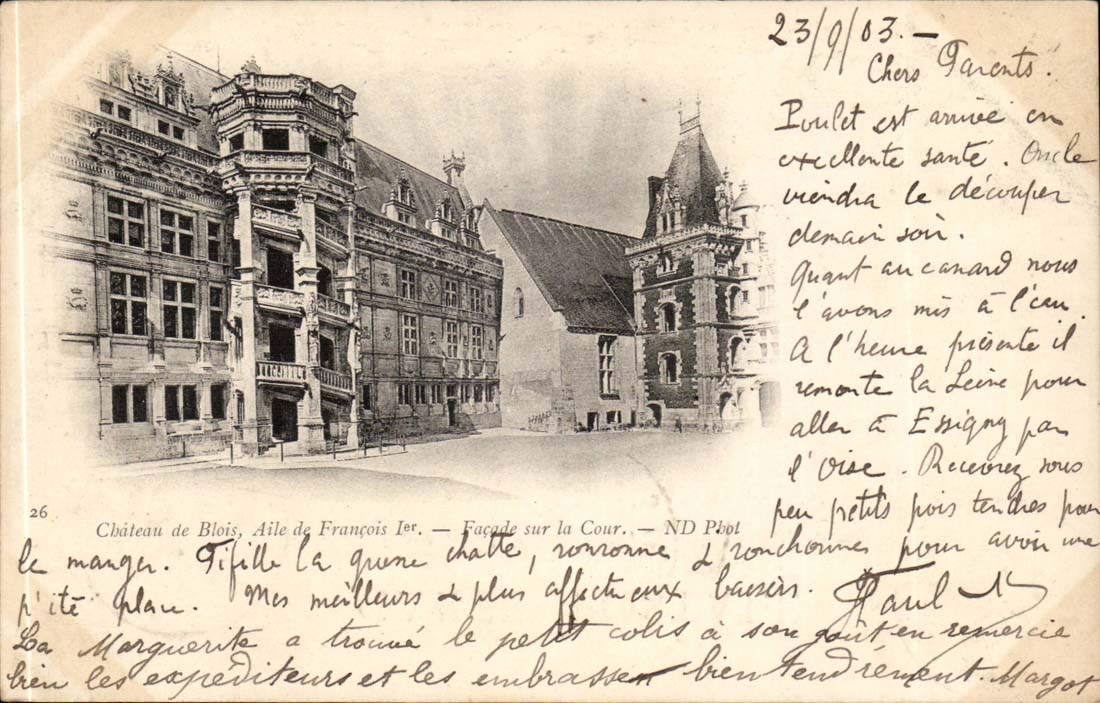 23/9/03.—
Chers Parents.
Poulet est arrivé en
excellente santé. Oncle
viendra le découper
demain soir.
Quant au canard nous
l'avons mis à l'eau.
A l'heure présente il
remonte la Seine pour
aller à Essigny par
l'Oise. Recevrez sous
peu petits pois tendres pour
26
Château de Blois, Aile de François Ier. — Façade sur la Cour. — ND Phot
le manger. Fifille la chatte, ronronne & ronchonne pour avoir une
p'ite place. Mes meilleurs & plus affectueux baisers. Paul
La Marguerite a trouvé le petit colis à son goût en remercie
bien les expéditeurs et les embrasse bien tendrement. Margot